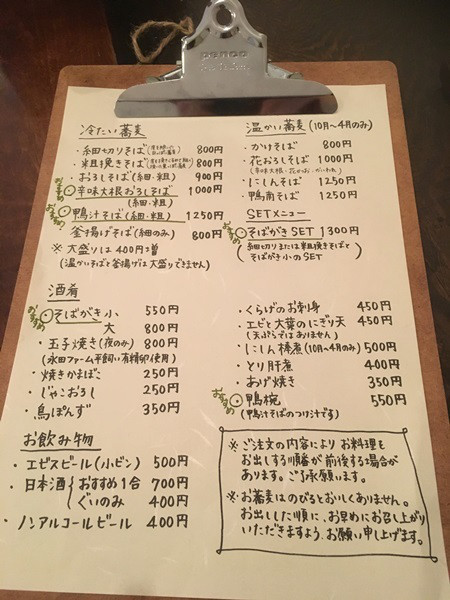 penco
冷たい蕎麦
・細切りそば 800円
・粗挽きそば 800円
・おろしそば(細・粗) 900円
おすすめ
辛味大根おろしそば 1000円
(細・粗)
おすすめ
鴨汁そば(細・粗) 1250円
釜揚げそば(細のみ) 800円
※大盛りは400円増
(温かいそばと釜揚げは大盛りできません)
温かい蕎麦(10月〜4月のみ)
・かけそば 800円
・花おろしそば 1000円
・にしんそば 1250円
・鴨南そば 1250円
SETメニュー
おすすめ
そばがきSET 1300円
(細切りまたは粗挽きそばと
そばがき小のSET)
酒肴
おすすめ
そばがき 小 550円
大 800円
・玉子焼き(夜のみ) 800円
(永田ファーム平飼い有精卵使用)
・焼きかまぼこ 250円
・じゃこおろし 250円
・鳥ぽんず 350円
・くらげのお刺身 450円
・エビと大葉のにぎり天 450円
(天ぷらではありません)
・にしん棒煮(10月〜4月のみ) 500円
・とり肝煮 400円
・あげ焼き 350円
おすすめ
鴨椀 550円
(鴨汁そばのつけ汁です)
お飲み物
・エビスビール(小ビン) 500円
・日本酒 おすすめ1合 700円
ぐいのみ 400円
・ノンアルコールビール 400円
※ご注文の内容によりお料理を
お出しする順番が前後する場合が
あります。ご了承願います。
※お蕎麦はのびるとおいしくありません。
お出しした順に、お早めにお召し上がり
いただきますよう、お願い申し上げます。